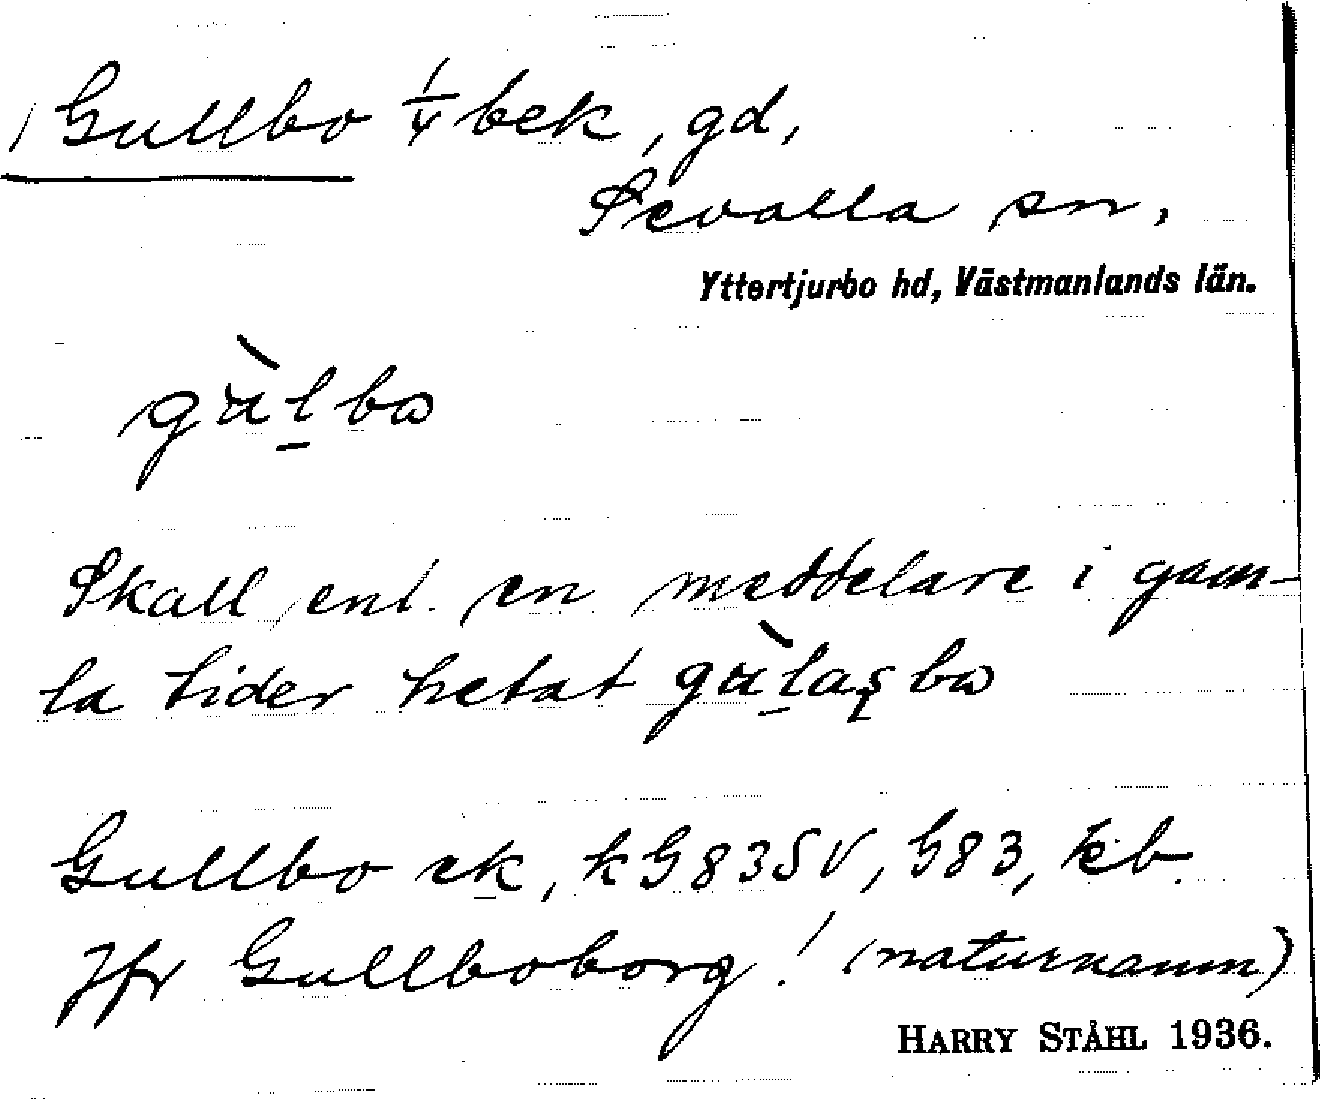 Gullbo 1/4 bek, gd,
Sevalla sn,
Yttertjurbo hd, Västmanlands län.
gùl̠bω
Skall enl. en meddelare i gam-
la tider hetat gùl̠aʂbω
Gullbo ek, kG83SV, G83, kb.
Jfr Gullboborg! (naturnamn)
HARRY STÅHL 1936.